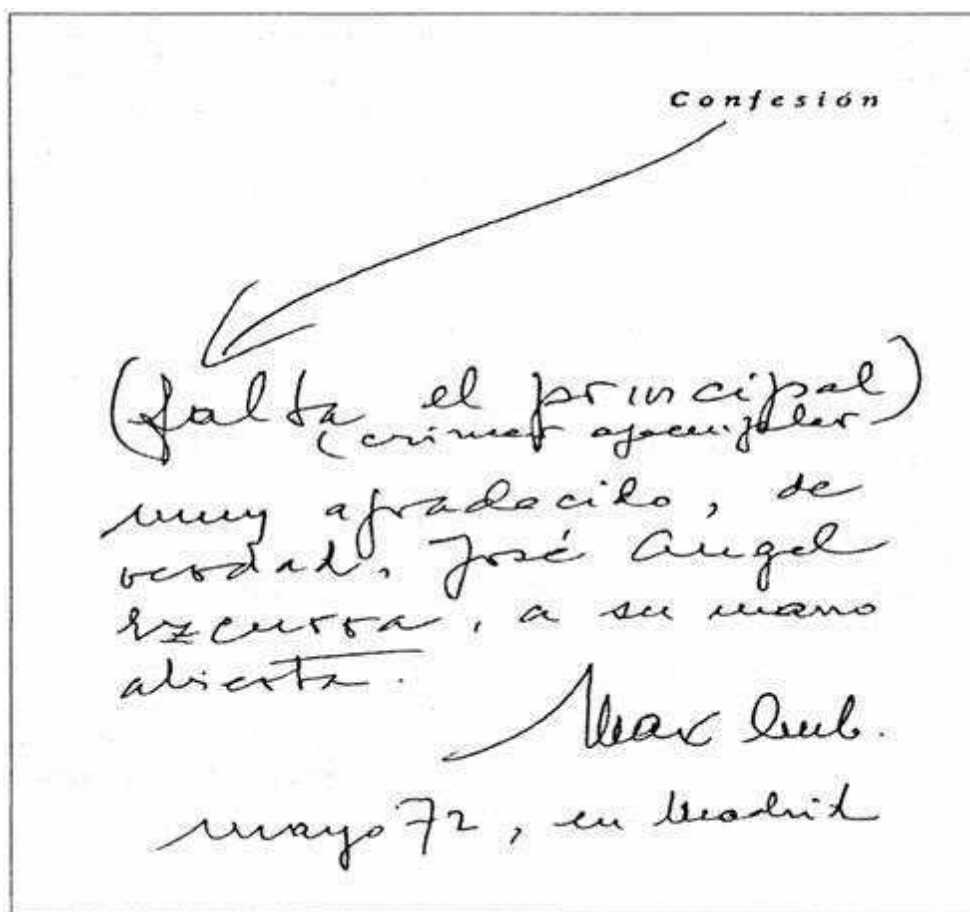 Confesión
(falta el principal)
(crimes ejemplares
muy agradecido, de
verdad, José Angel
Ezcurra, a su mano
abierta.
Max Aub.
mayo 72, en Madrid